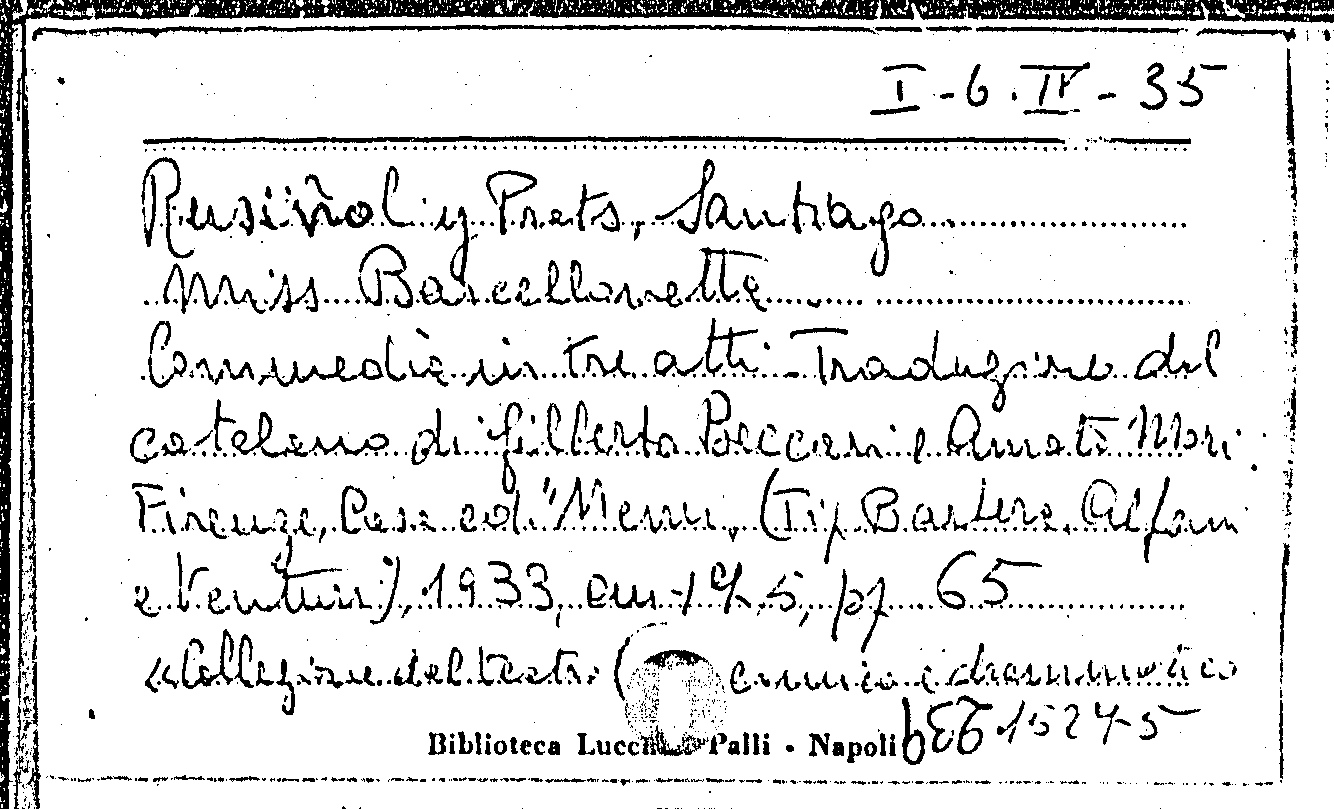 I - 6. IV - 35
Rusiñol y Prats, Santiago
Miss Barcellonette
Commedia in tre atti - Traduzione dal
catalano di Gilberto Beccari e Amato Mori
Firenze, Casa ed. "Nemi, (Tip Barbera, Alfani
e Venturi), 1933, cm 17,5, pp 65
«Collezione del teatro comico e drammatico
Biblioteca Lucchesi Palli - Napoli 15275